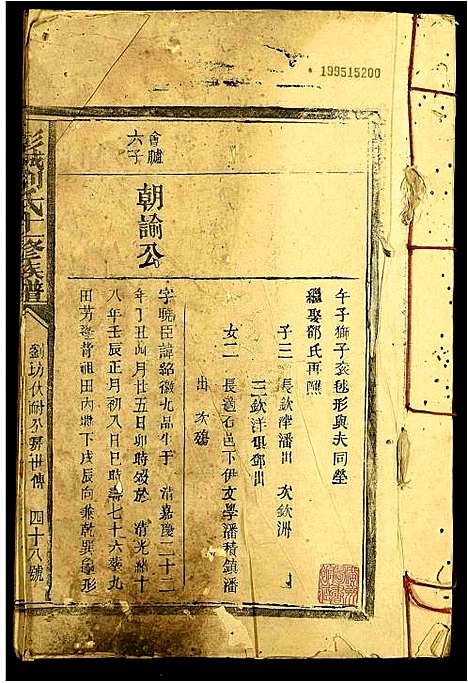 199515200
午子獅子滾毬形與夫同塋
繼娶鄧氏再醮
子三 長欽津潘出 次欽洲
三欽洋俱鄧出
女二 長適石邑下伊文學潘積鎮潘
出 次殤
會臚
六子
朝諭公
字曉臣諱紹徽九品生于 清嘉慶二十二
年丁丑四月廿五日卯時歿於 清光緒十
八年壬辰正月初八日巳時壽七十六葬九
田芳 背祖田內地下戌辰向兼乾巽 形
彭城劉氏十一修族譜
劉坊伏耐公房世傳 四十八號